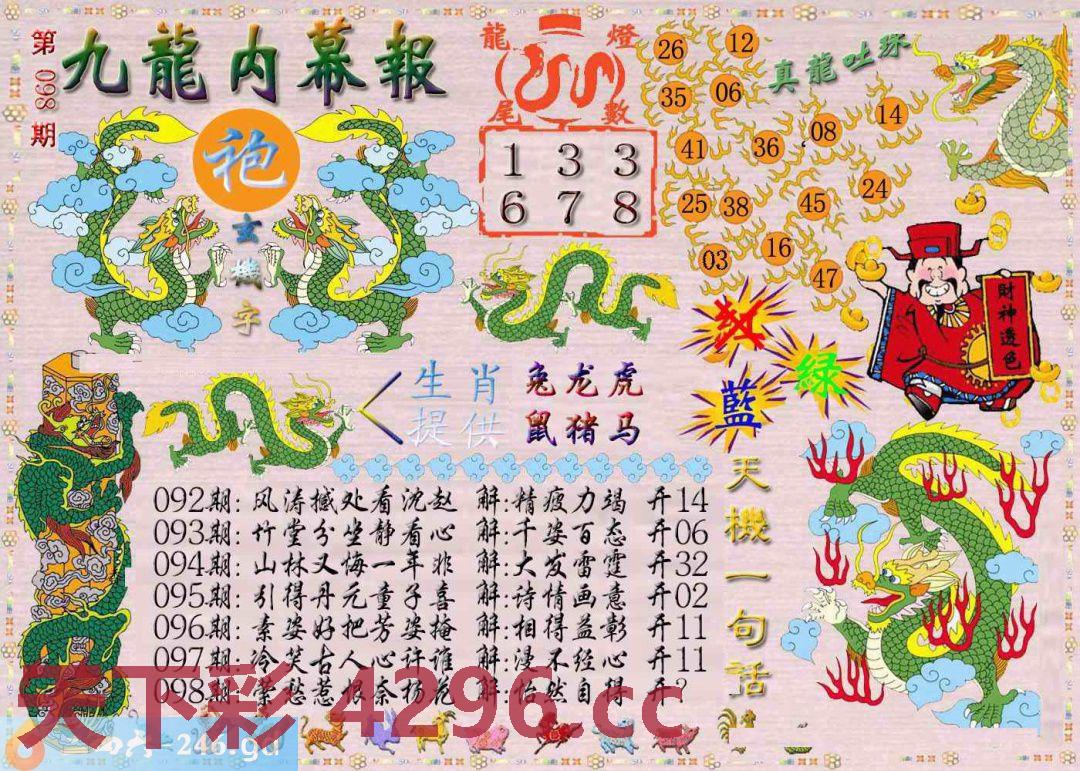 第098期
九龍内幕報
袍
玄機字
龍燈
尾數
1 3 3
6 7 8
26 12
35 06
41 36 08 14
25 38 45 24
03 16 47
真龍吐珠
財神透色
红
绿
藍
生肖 兔龙虎
提供 鼠猪马
092期: 风涛撼处看沈赵 解:精疲力竭 开14
093期: 竹堂分坐静看心 解:千姿百态 开06
094期: 山林又悔一年非 解:大发雷霆 开32
095期: 引得丹元童子喜 解:诗情画意 开02
096期: 素姿好把芳姿掩 解:相得益彰 开11
097期: 冷笑古人心许谁 解:漫不经心 开11
098期: 萦愁惹恨奈杨花 解:怡然自得 开?
天機一句話
天下彩 4296.cc
=246.gd